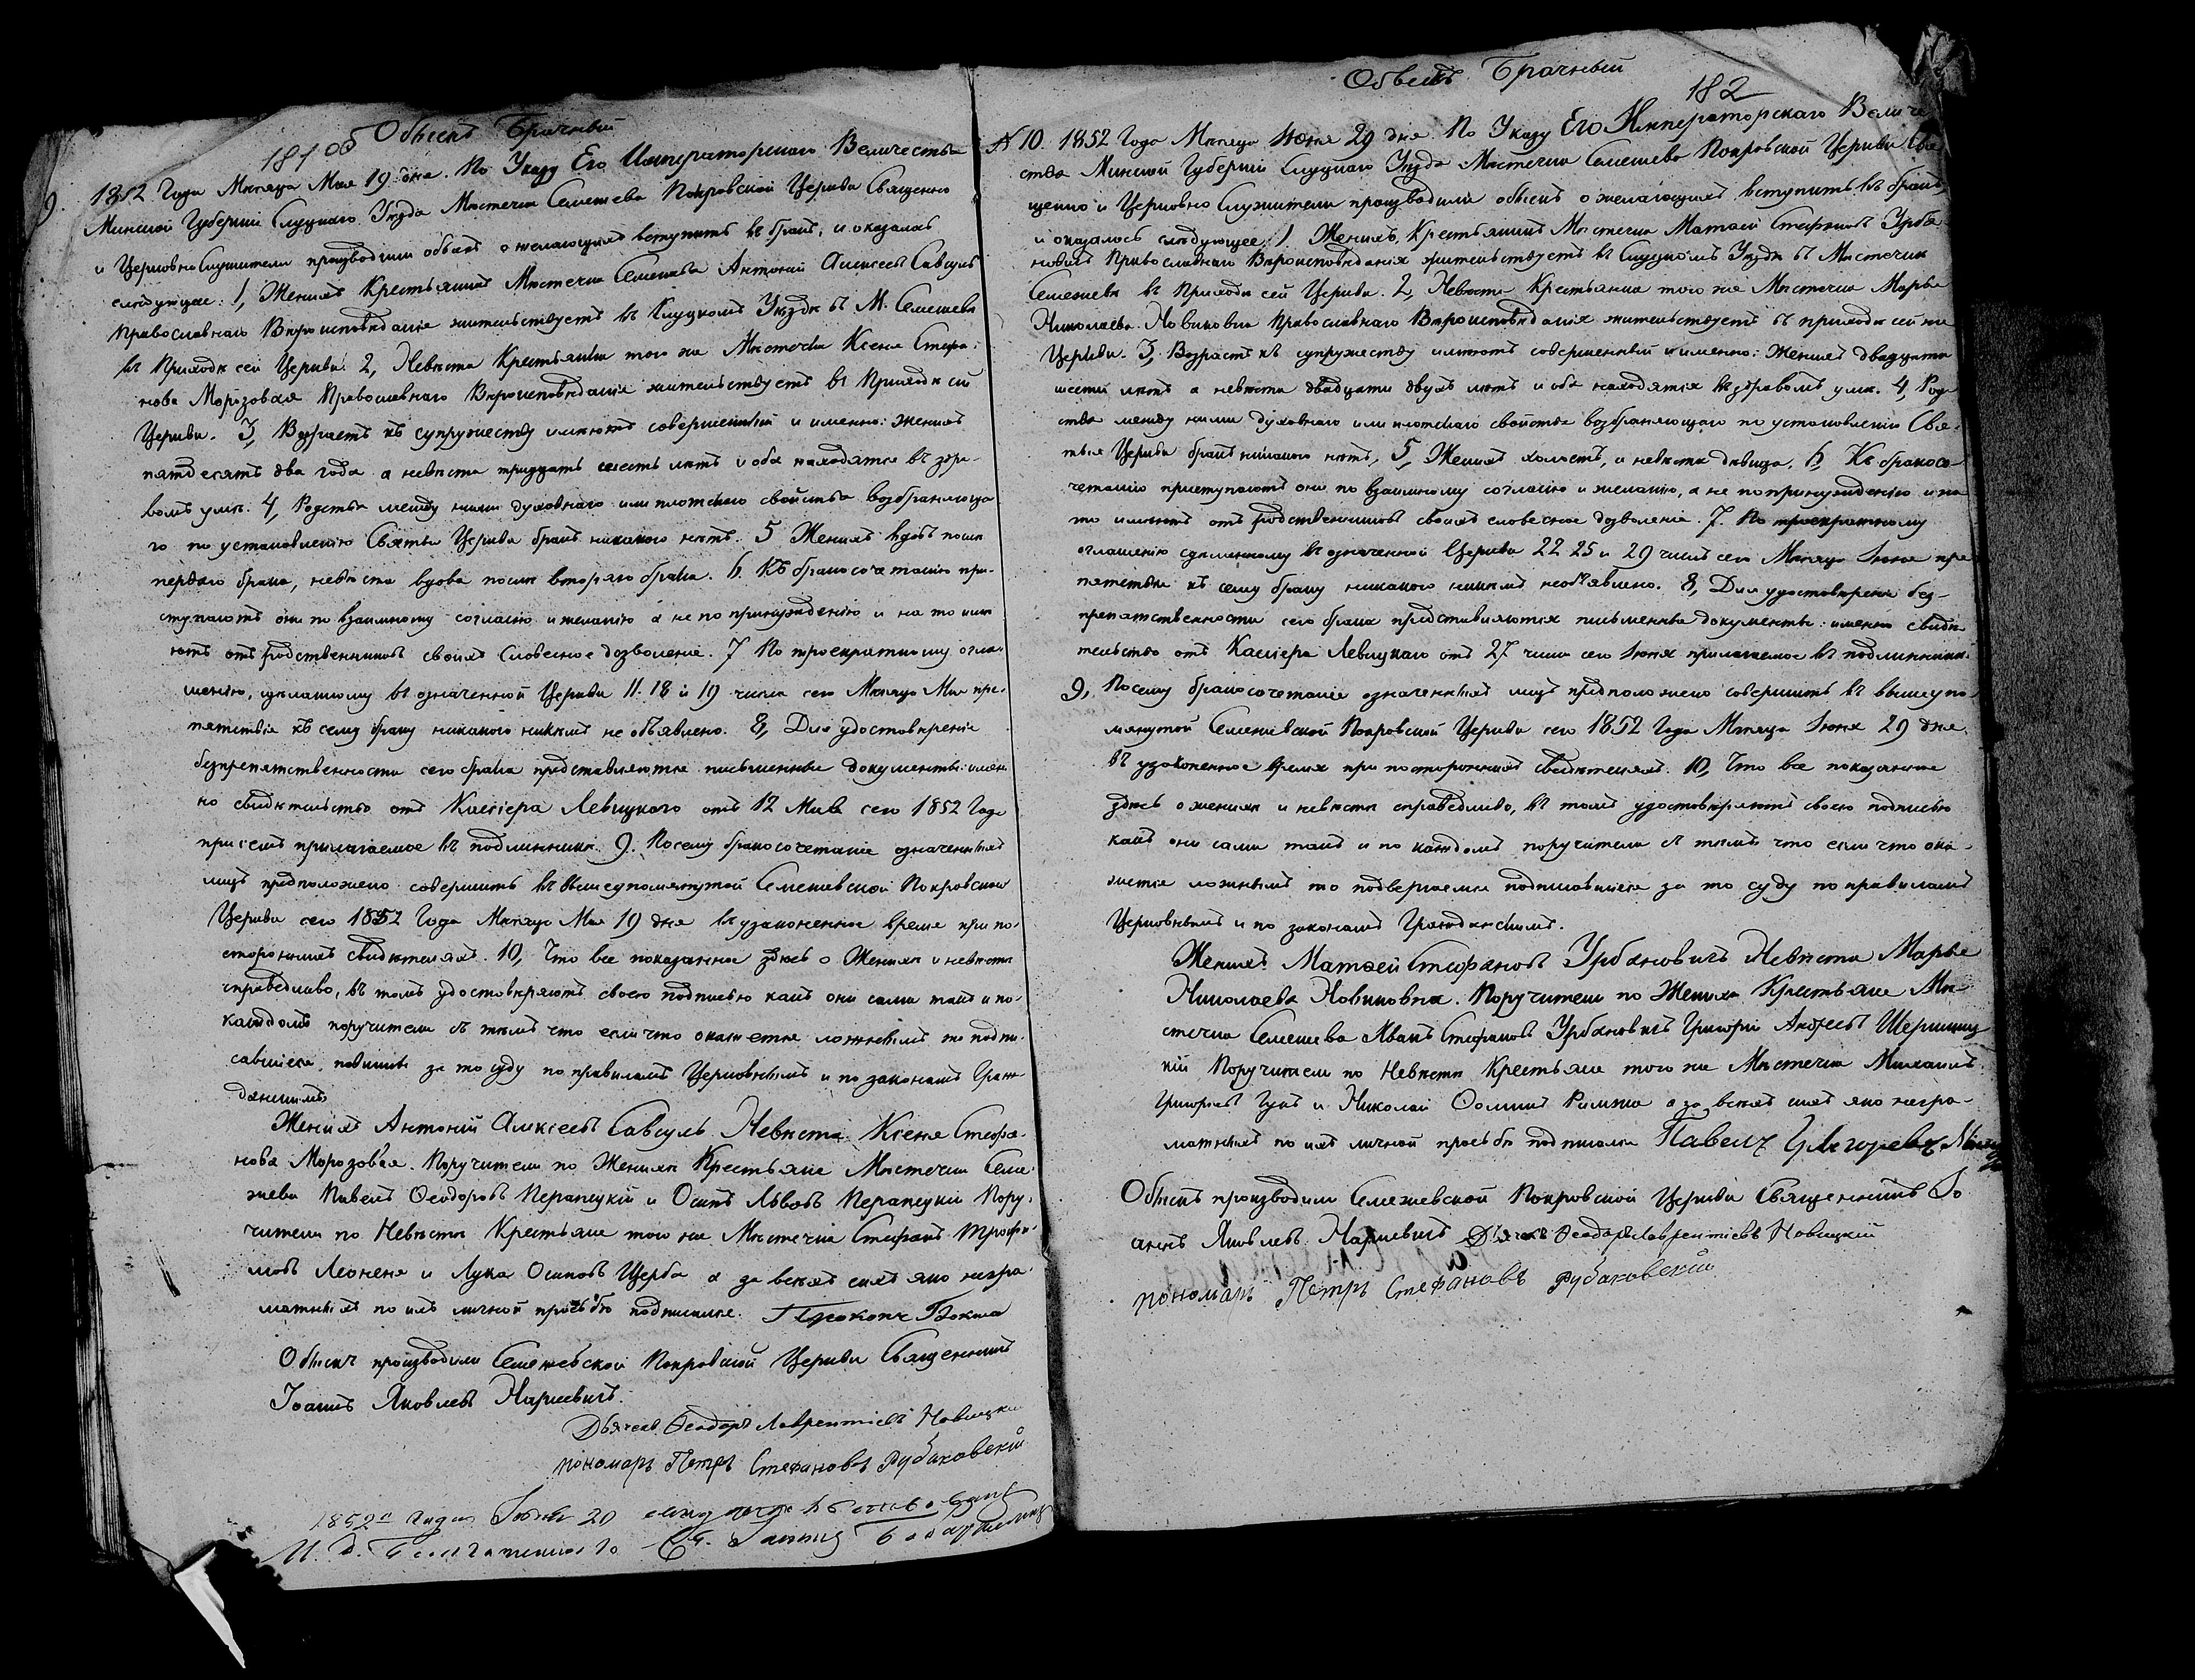 181 об Обыскъ Брачный
9. 1852 Года Мѣсяца Мая 19 дня. По Указу Его Императорскаго Величества
Минской Губерніи Слуцкаго Уѣзда Мѣстечка Семежева Покровской Церкви Священно
и Церковно Служители производили обыскъ о желающихъ вступить въ бракъ, и оказалось
слѣдующее: 1, Женихъ Крестьянинъ Мѣстечка Семежева Антоній Алексѣевъ Савсулъ
Православнаго Вѣроисповѣданія жительствуетъ въ Слуцкомъ Уѣздѣ въ М. Семежевѣ
въ Приходѣ сей Церкви. 2, Невѣста Крестьянка того же Мѣстечка Ксенія Стефа-
нова Морозовая Православнаго Вѣроисповѣданія жительствуетъ въ Приходѣ сей
Церкви. 3, Возрастъ къ супружеству имѣютъ совершенный и именно: Женихъ
пятдесятъ два года а невѣста тридцать шесть лѣтъ и оба находятся въ здра-
вомъ умѣ. 4, Родства между ними духовнаго или плотскаго свойства возбраняюща
го по установленію Святыя Церкви бракъ никакого нѣтъ. 5 Женихъ вдовъ послѣ
перваго брака, невѣста вдова послѣ втораго брака. 6. Къ бракосочетанію при-
ступаютъ они по взаимному согласію и желанію а не по принужденію и на то имѣ
ютъ отъ родственниковъ своихъ словесное дозволеніе. 7 По троекратному огла-
шенію, сдѣланному въ означенной Церкви 11. 18 и 19 числа сего Мѣсяца Мая пре-
пятствія къ сему браку никакого никѣмъ не объявлено. 8, Для удостовѣренія
безпрепятственности сего брака представляются письменные документы: имен
но свидѣтельство отъ Кассіера Левицкаго отъ 12 Мая сего 1852 Года
при семъ прилагаемое въ подлинникѣ. 9. Посему бракосочетаніе означенныхъ
лицъ предположено совершить въ вышеупомянутой Семежевской Покровской
Церкви сего 1852 Года Мѣсяца Мая 19 дня въ узаконенное время при по-
стороннихъ свидѣтеляхъ. 10, Что все показанное здѣсь о Женихѣ и невѣстѣ
справедливо, въ томъ удостовѣряютъ своею подписью какъ они сами такъ и по
каждомъ поручители съ тѣмъ что если что окажется ложнымъ то подпи-
савшіеся повинны за то суду по правиламъ Церковнымъ и по законамъ Граж-
данскимъ
Женихъ Антоній Алексѣевъ Савсулъ Невѣста Ксенія Стефа-
нова Морозовая. Поручители по Женихѣ Крестьяне Мѣстечка Семе-
жева Павелъ Ѳеодоровъ Перапецкій и Осипъ Львовъ Перапецкій Пору-
чители по Невѣстѣ Крестьяне того же Мѣстечка Стефанъ Трофи-
мовъ Леоненя и Лука Осиповъ Щерба а за всѣхъ сихъ яко негра-
матныхъ по ихъ личной прозьбѣ подписался. Прокопъ Бокша
Обыскъ производили Семежевской Покровской Церкви Священникъ
Іоаннъ Яковлевъ Наркевичъ.
Дьячекъ Ѳеодоръ Лаврентіевъ Новицкій
пономарь Петръ Стефановъ Рубановскій
1852 года 20
И. Д. Благочиннаго Св.
Обыскъ Брачный
182
№ 10. 1852 Года Мѣсяца Юня 29 дня. По Указу Его Императорскаго Величе
ства Минской Губерніи Слуцкаго Уѣзда Мѣстечка Семежева Покровской Церкви Свя
щенно и Церковно Служители производили обыскъ о желающихъ вступить въ бракъ,
и оказалось слѣдующее: 1 Женихъ, Крестьянинъ Мѣстечка Матѳей Стефановъ Урба
новичъ Православнаго Вѣроисповѣданія жительствуетъ въ Слуцкомъ Уѣздѣ въ Мѣстечкѣ
Семежевѣ въ Приходѣ сей Церкви. 2, Невѣста Крестьянка того же Мѣстечка Марья
Николаева Новиковна Православнаго Вѣроисповѣданія жительствуетъ въ приходѣ сей же
Церкви. 3, Возрастъ къ супружеству имѣютъ совершенный и именно: Женихъ двадцати
шести лѣтъ а невѣста двадцати двухъ лѣтъ и оба находятся въ здравомъ умѣ. 4, Род
ства между ними духовнаго или плотскаго свойства возбраняющаго по установленію Свя-
тыя Церкви бракъ никакого нѣтъ, 5, Женихъ холостъ, и невѣста дѣвица, 6, Къ бракосо-
четанію приступаютъ они по взаимному согласію и желанію, а не по принужденію и на
то имѣютъ отъ родственниковъ своихъ словесное дозволеніе. 7. По троекратному
оглашенію сдѣланному въ означенной Церкви 22 25 и 29 числъ сего Мѣсяца Іюня пре
пятствія къ сему браку никакого никѣмъ необъявлено. 8, Для удостовѣренія без-
препятственности сего брака представляются письменные документы: именно свидѣ
тельство отъ Кассіера Левицкаго отъ 27 числа сего Іюня прилагаемое въ подлинникѣ.
9, Посему бракосочетаніе означенныхъ лицъ предположено совершить въ вышеупо-
мянутой Семежевской Покровской Церкви сего 1852 Года Мѣсяца Іюня 29 дня
въ узаконенное время при постороннихъ свидѣтеляхъ. 10, Что все показанное
здѣсь о женихѣ и невѣстѣ справедливо, въ томъ удостовѣряютъ своею подписью
какъ они сами такъ и по каждомъ поручители съ тѣмъ что если что ока-
жется ложнымъ то подвергаемся подписавшіеся за то суду по правиламъ
Церковнымъ и по законамъ Гражданскимъ.
Женихъ Матѳей Стефановъ Урбановичъ Невѣста Марья
Николаева Новиковна. Поручители по Женихѣ Крестьяне Мѣ
стечка Семежева Иванъ Стефановъ Урбановичъ Григорій Андреевъ
кій Поручители по Невѣстѣ Крестьяне того же Мѣстечка Михаилъ
Григорьевъ Гукъ и Николай Ѳоминъ Римжа а за всѣхъ сихъ яко негра-
матныхъ по ихъ личной прозьбѣ подписался Павелъ Григорьевъ
Обыскъ производили Семежевской Покровской Церкви Священникъ Іо
аннъ Яковлевъ Наркевичъ Дьячекъ Ѳеодоръ Лаврентіевъ Новицкій
пономарь Петръ Стефановъ Рубановскій